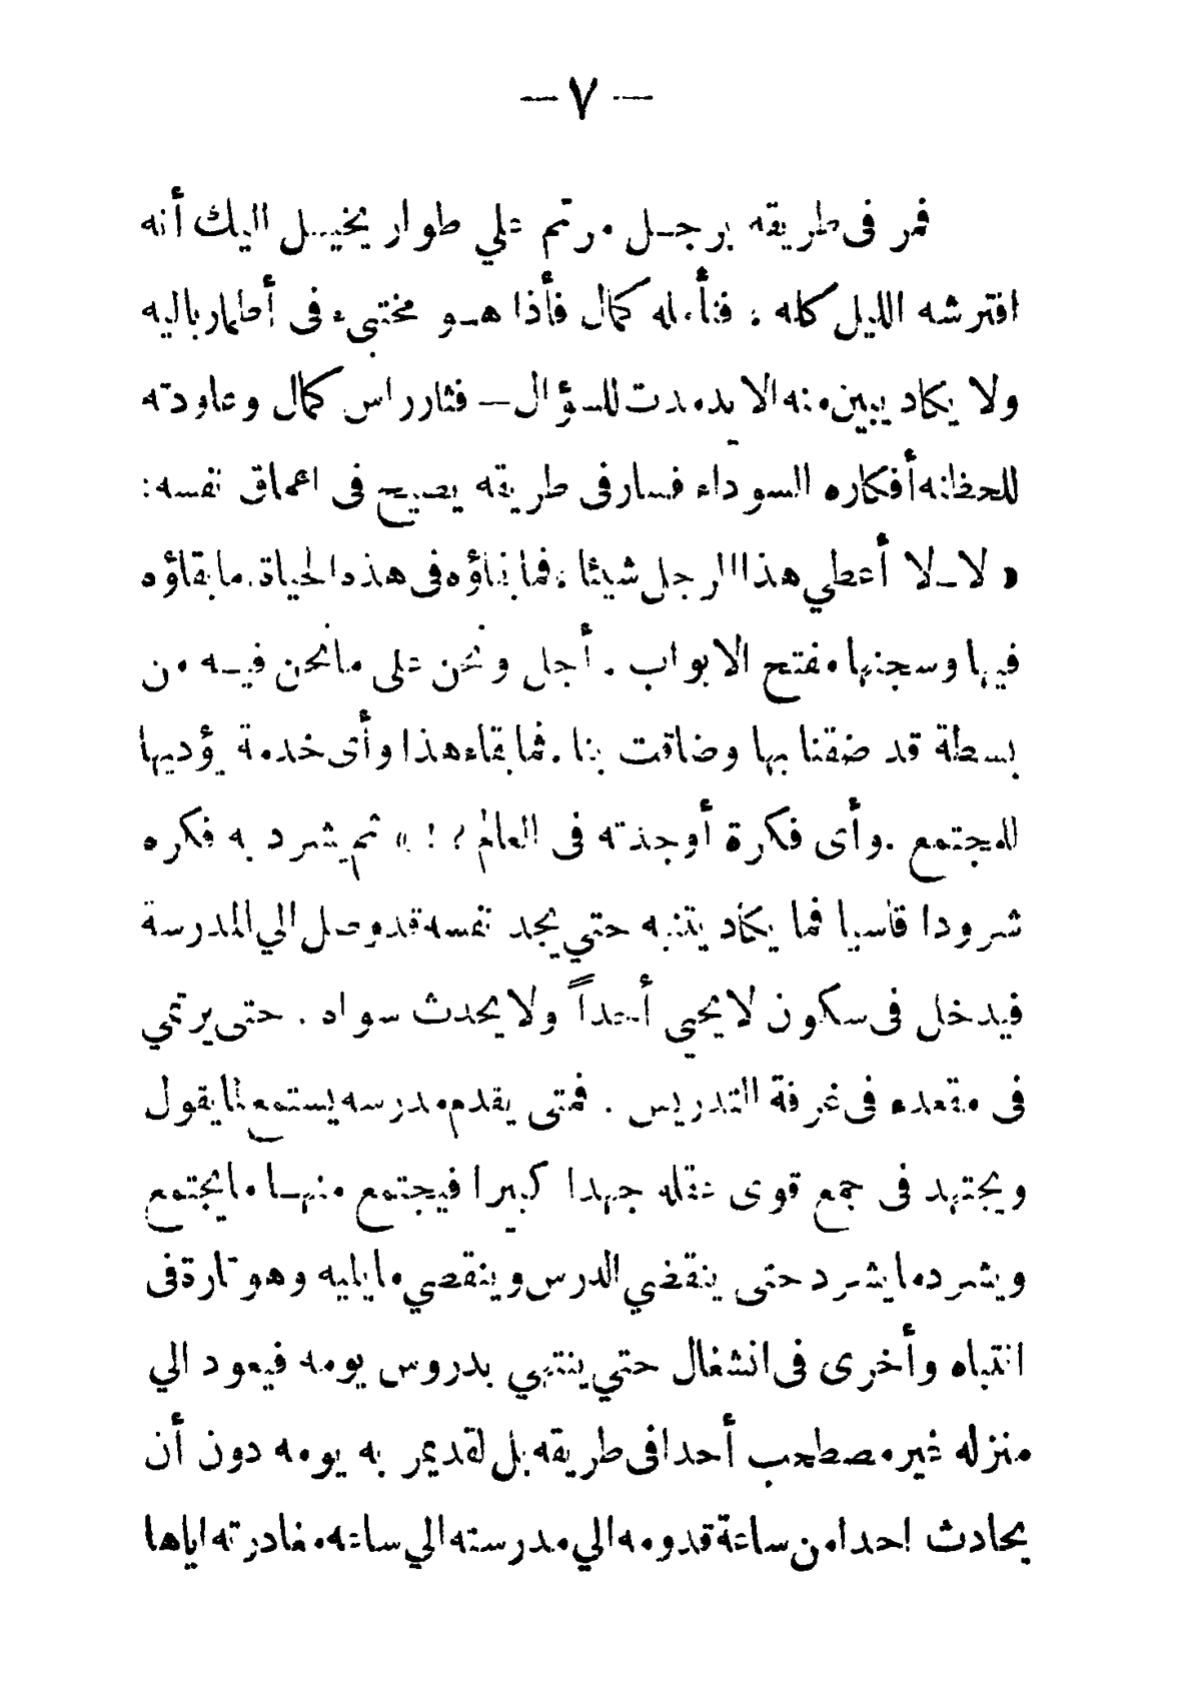 — ٧ —
فمر فى طريقه برجل مرتم علي طوار يخيل اليك أنه
افترشه الليل كله ؛ فتأمله كمال فأذا هو مختبىء فى أطمار باليه
ولا يكاد يبين منه الا يد مدت للسؤال — فثار راس كمال وعاودته
للحظاته أفكاره السوداء فسار فى طريقه يصيح فى اعماق نفسه :
« لا ـ لا أعطي هذا الرجل شيئا ؛ فما بقاؤه فى هذه الحياة . ما بقاؤه
فيها وسجنها مفتح الابواب . أجل ونحن على ما نحن فيه من
بسطة قد ضقنا بها وضاقت بنا . فما بقاء هذا وأى خدمة يؤديها
للمجتمع . وأى فكرة أوجدته فى العالم ؟ ! » ثم يشرد به فكره
شرودا قاسيا فما يكاد يتنبه حتي يجد نفسه قد وصل الي المدرسة
فيدخل فى سكون لا يحيى أحداً ولا يحدث سواه . حتى يرتمي
فى مقعده فى غرفة التدريس . فمتى يقدم مدرسه يستمع لما يقول
ويجتهد فى جمع قوى عقله جهدا كبيرا فيجتمع منها ما يجتمع
ويشرد ما يشرد حتى ينقضي الدرس وينقضي ما يليه وهو تارة فى
انتباه وأخرى فى انشغال حتي ينتهي بدروس يومه فيعود الي
منزله غير مصطحب أحدا فى طريقه بل لقد يمر به يومه دون أن
يحادث احدا من ساعة قدومه الي مدرسته الي ساعته مغادرته اياها